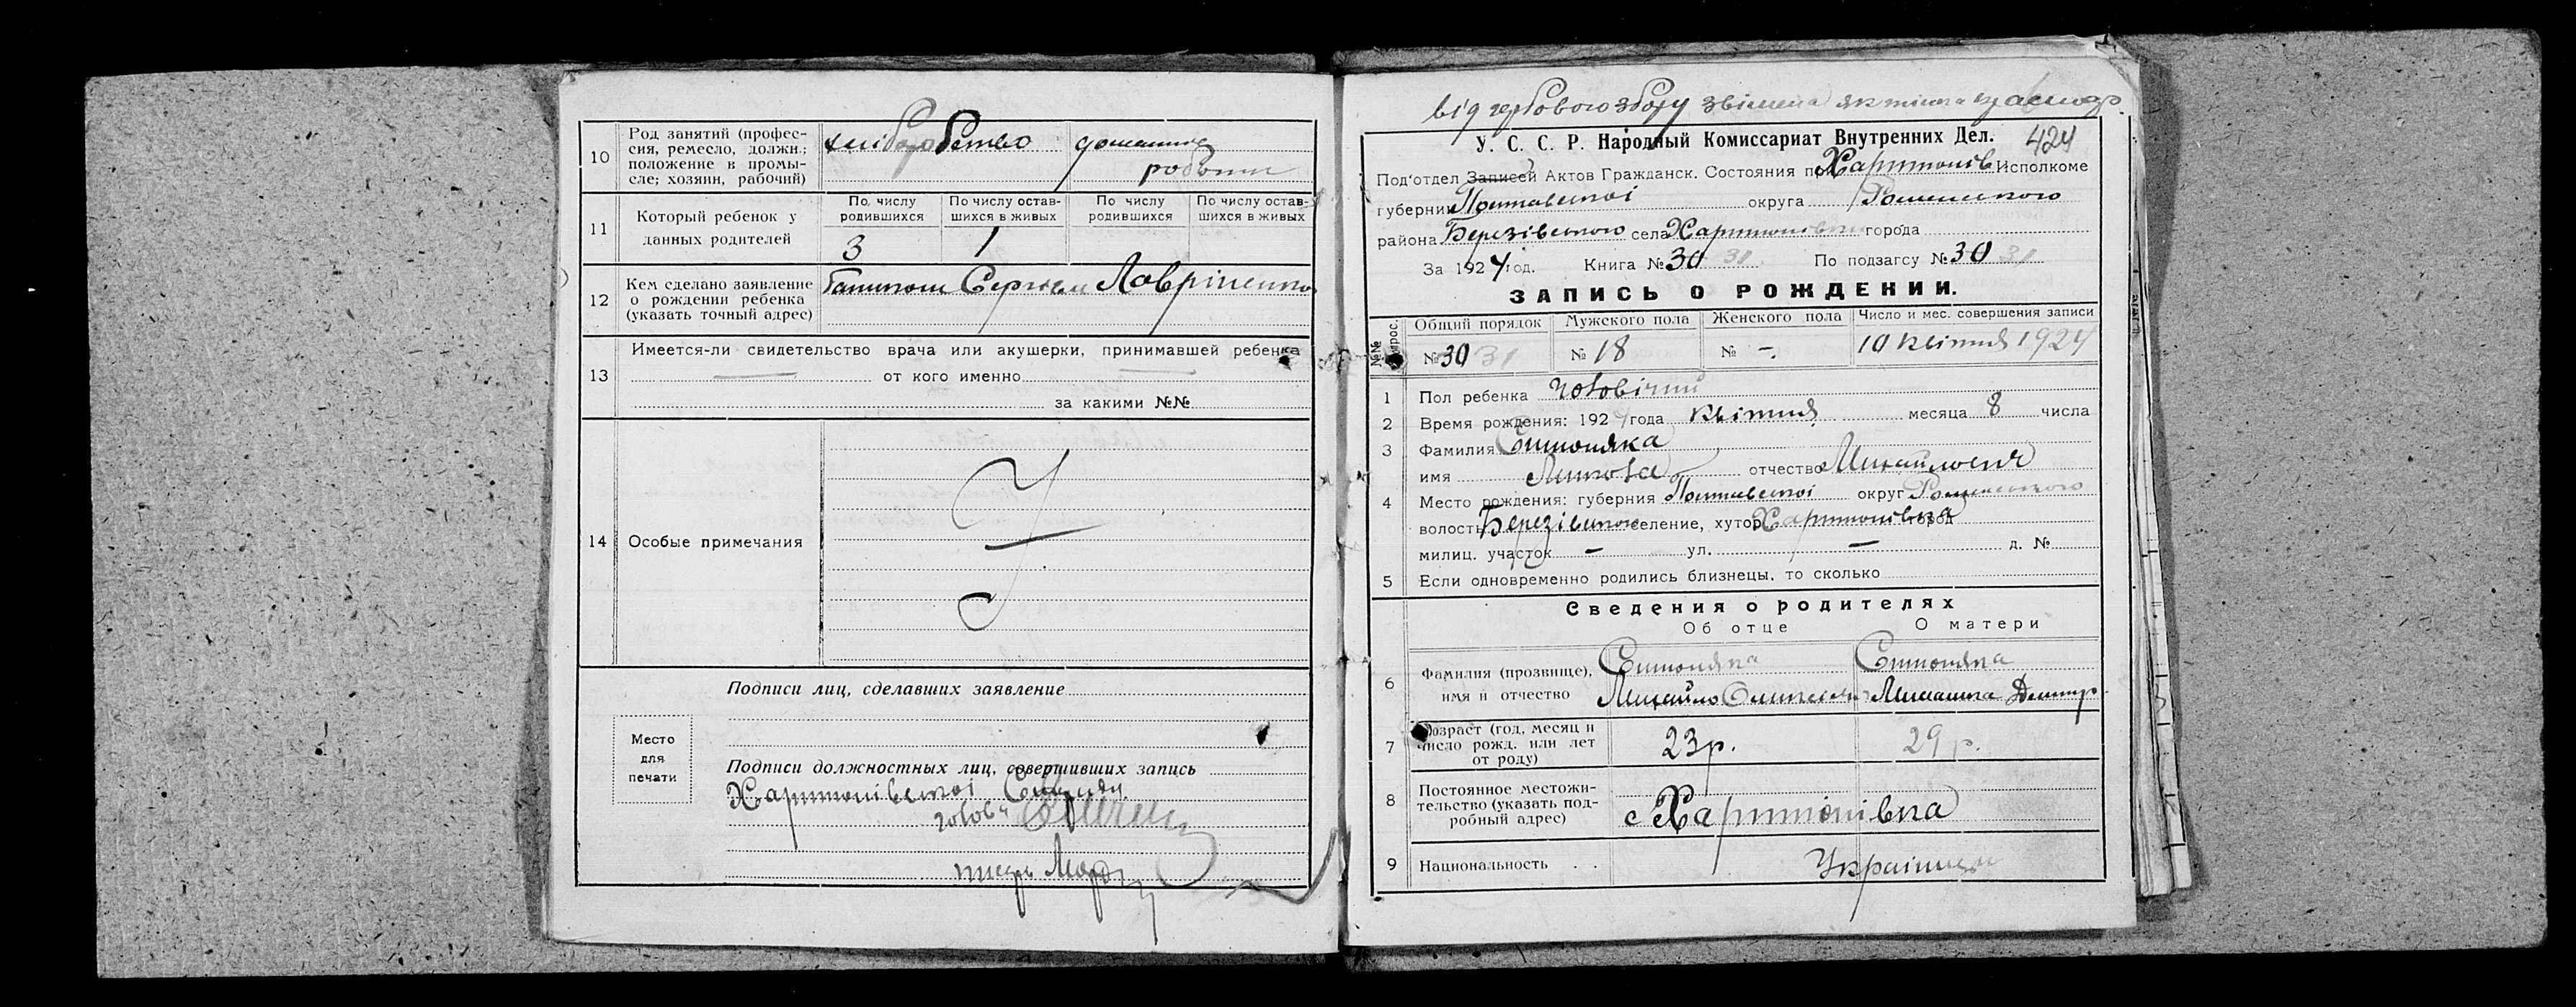 10
Род занятий (профес-
сия, ремесло, должн.;
положение в промы-
сле; хозяин, рабочий)
хліборобство
домашня
робота
11
Который ребенок у
данных родителей
По числу
родившихся
По числу остав-
шихся в живых
По числу
родившихся
По числу остав-
шихся в живых
3
1
12
Кем сделано заявление
о рождении ребенка
(указать точный адрес)
Сергієм Лавріненко
13
Имеется-ли свидетельство врача или акушерки, принимавшей ребенка
от кого именно
за какими №№
14
Особые примечания
Подписи лиц, сделавших заявление
Место
для
печати
Подписи должностных лиц, совершивших запись
Хартонівської Сільради
голова
писарь
від гербового збору звільнена як
У. С. С. Р. Народный Комиссариат Внутренних Дел.
424
Под'отдел Записей Актов Гражданск. Состояния при Хартонів Исполкоме
губернии Полтавської округа Роменського
района Березівського села Хартонівки города
За 1924 год. Книга № 30 31 По подзагсу № 30 31
ЗАПИСЬ О РОЖДЕНИИ.
№№ вопрос.
Общий порядок
Мужского пола
Женского пола
Число и мес. совершения записи
№ 30 31
№ 18
№ -.
10 квітня 1924
1 Пол ребенка чоловічий
2 Время рождения: 1924 года квітня месяца 8 числа
3 Фамилия Симоняка
имя Микола отчество Михайлович
4 Место рождения: губерния Полтавської округ Роменського
волость Березівської селение, хутор Хартонівка город
милиц. участок - ул. - д. №
5 Если одновременно родились близнецы, то сколько
Сведения о родителях
Об отце
О матери
6
Фамилия (прозвище),
имя и отчество
Симоняка
Михайло
Симоняка
Дмитр
7
Возраст (год, месяц и
число рожд. или лет
от роду)
23 р.
29 р.
8
Постоянное местожи-
тельство (указать под-
робный адрес)
с Хартонівка
9 Национальность . .
Українці